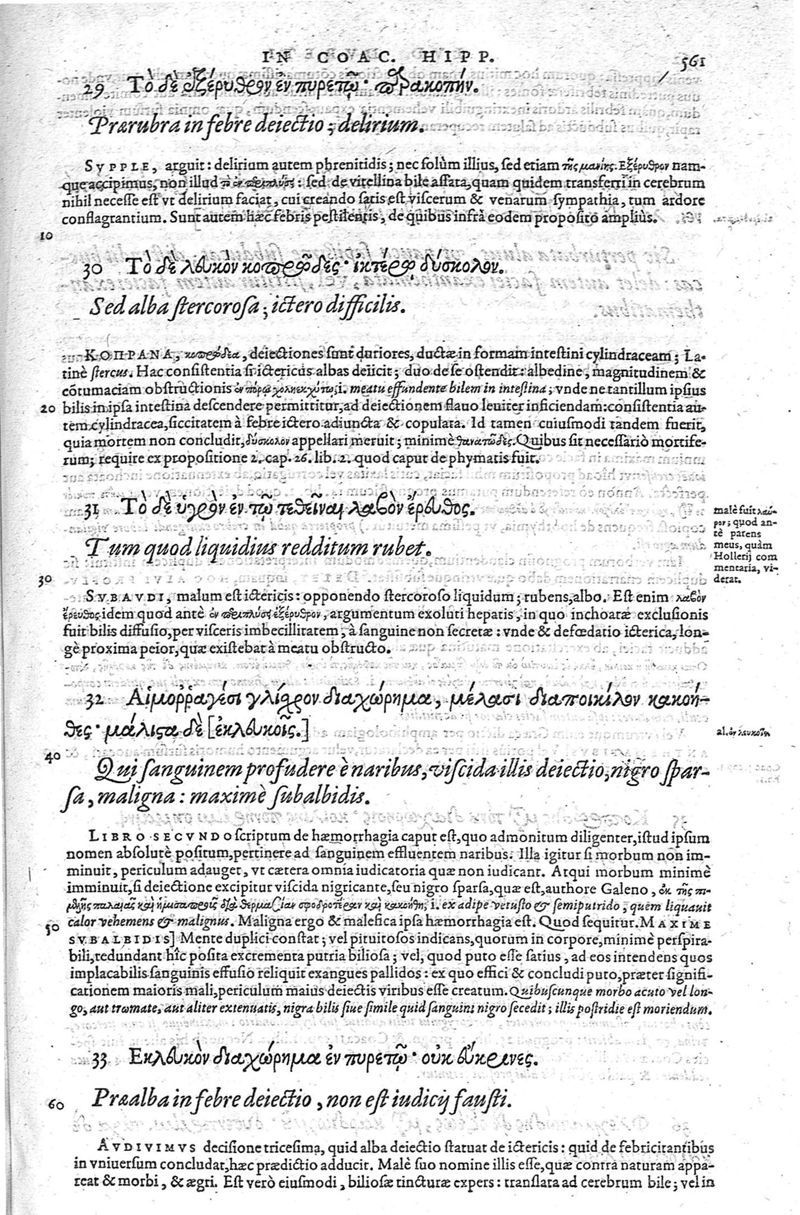 IN COAC. HIPP. 561
29 Τὸ δὲ ἐξέρυθρον ἐν πυρετῷ· παρακοπήν.
Prærubra in febre deiectio, delirium.
SVPPLE, arguit: delirium autem phrenitidis; nec solùm illius, sed etiam τῆς μανίης. Ἐξέρυθρον nam-
que accipimus, non illud : sed de vitellina bile assata, quam quidem transferri in cerebrum
nihil necesse est vt delirium faciat, cui creando satis est viscerum & venarum sympathia, tum ardore
conflagrantium. Sunt autem hæc febris pestilentis, de quibus infrà eodem proposito ampliùs.
10
30 Τὸ δὲ λευκὸν κοπρῶδες· ἰκτέρῳ δύσκολον.
Sed alba stercorosa, ictero difficilis.
ΚΟΠΡΑΝΑ, deiectiones sunt duriores, ductæ in formam intestini cylindraceam; La-
tinè stercus. Hac consistentia si ictericus albas deiicit; duo de se ostendit: albedine, magnitudinem &
cõtumaciam obstructionis i. meatu effundente bilem in intestina; vnde ne tantillum ipsius
20 bilis in ipsa intestina descendere permittitur, ad deiectionem flauo leuiter inficiendam: consistentia au-
tem cylindracea, siccitatem à febre ictero adiuncta & copulata. Id tamen cuiusmodi tandem fuerit,
quia mortem non concludit, δύσκολον appellari meruit; minimè θανατῶδες. Quibus sit necessariò mortife-
rum; require ex propositione 2. cap. 26. lib. 2. quod caput de phymatis fuit.
31 Τὸ δὲ ὑγρὸν ἐν τῷ τεθεῖναι λαβὸν ἔρευθος.
malè fuit
per; quod an-
tè parens
meus, quàm
Hollerij com
mentaria, vi-
derat.
Tum quod liquidius redditum rubet.
30
SVBAVDI, malum est ictericis: opponendo stercoroso liquidum; rubens, albo. Est enim λαβὸν
ἔρευθος idem quod antè ἐξέρυθρον, argumentum exoluti hepatis, in quo inchoatæ exclusionis
fuit bilis diffusio, per visceris imbecillitatem, à sanguine non secretæ: vnde & defœdatio icterica, lon-
gè proxima peior, quæ existebat à meatu obstructo.
32 Αἱμορῥαγέσι γλίσχρον διαχώρημα, μέλασι διαποικίλον κακοή-
θες· μάλιστα δὲ [ἐκλεύκοις.]
al. ἐν λευκοῖσι.
40
Qui sanguinem profudere è naribus, viscida illis deiectio, nigro spar-
sa, maligna: maximè subalbidis.
LIBRO SECVNDO scriptum de hæmorrhagia caput est, quo admonitum diligenter, istud ipsum
nomen absolutè positum, pertinere ad sanguinem effluentem naribus. Illa igitur si morbum non im-
minuit, periculum adauget, vt cætera omnia iudicatoria quæ non iudicant. Atqui morbum minimè
imminuit, si deiectione excipitur viscida nigricante, seu nigro sparsa, quæ est, authore Galeno, ἐκ τῆς πι-
i. ex adipe vetusto & semiputrido, quem liquauit
50 calor vehemens & malignus. Maligna ergo & malefica ipsa hæmorrhagia est. Quod sequitur. MAXIME
SVBALBIDIS] Mente duplici constat; vel pituitosos indicans, quorum in corpore, minimè perspira-
bili, redundant hîc posita excrementa putria biliosa; vel, quod puto esse satius, ad eos intendens quos
implacabilis sanguinis effusio reliquit exangues pallidos: ex quo effici & concludi puto, præter signifi-
cationem maioris mali, periculum maius deiectis viribus esse creatum. Quibuscunque morbo acuto vel lon-
go, aut trωmate, aut aliter extenuatis, nigra bilis siue simile quid sanguini nigro secedit; illis postridie est moriendum.
33 Ἐκλευκὸν διαχώρημα ἐν πυρετῷ· οὐκ εὐκρινές.
60 Præalba in febre deiectio, non est iudicij fausti.
AVDIVIMVS decisione tricesima, quid alba deiectio statuat de ictericis: quid de febricitantibus
in vniuersum concludat, hæc prædictio adducit. Malè suo nomine illis esse, quæ contra naturam appa-
reat & morbi, & ægri. Est verò eiusmodi, biliosæ tincturæ expers: translata ad cerebrum bile; vel in